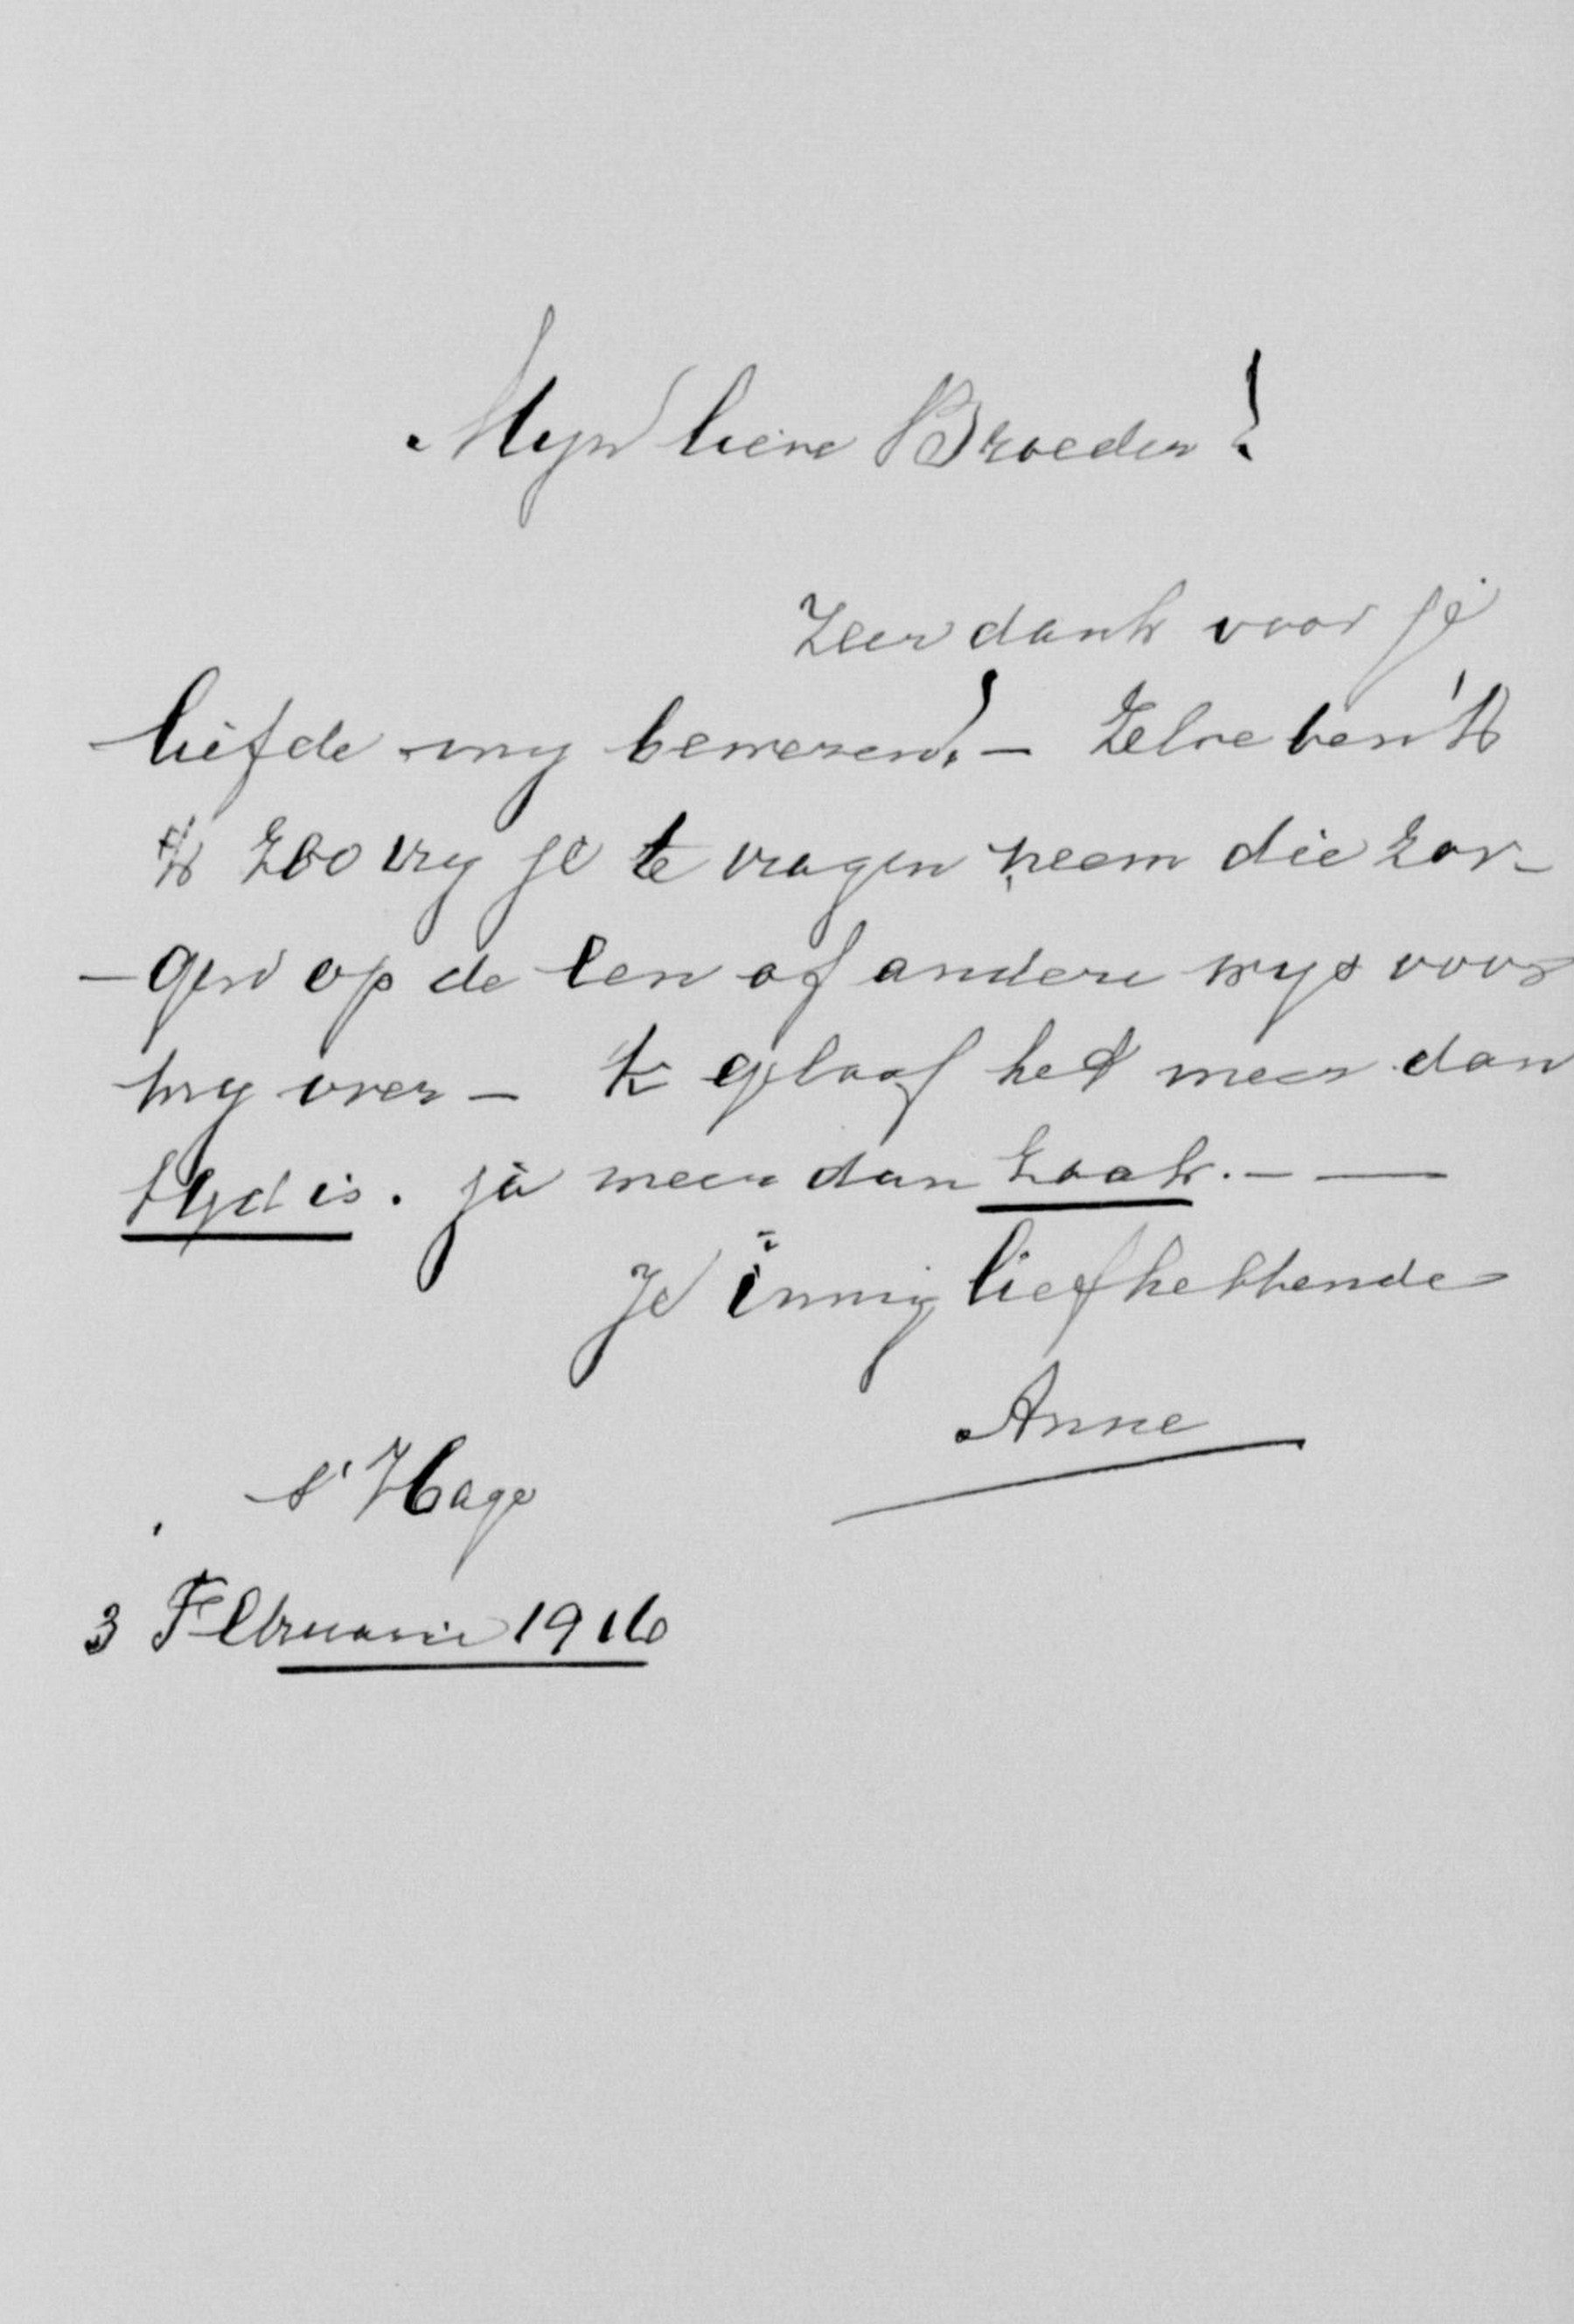 Myn lieve Broeder!
Zeer dank voor je
liefde my bewezen! — Zelve ben 'k
'k zoo vry je te vragen neem die zor-
-gen op de een of andere wys voor
my over — 'k geloof het meer dan
tyd is. ja meer dan zaak. — —
Je innig liefhebbende
Anne
s' Hage
3 Februarie 1916